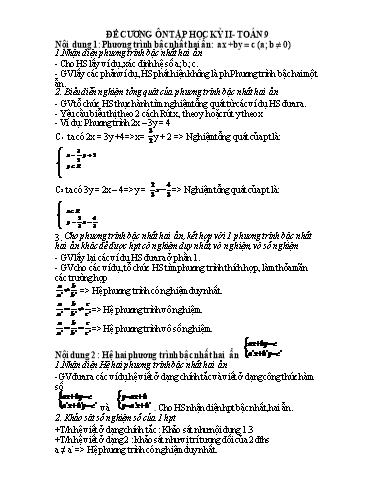 ĐỀ CƯƠNG ÔN TẬP HỌC KỲ II- TOÁN 9
Nội dung 1: Phương trình bậc nhất hai ẩn: ax + by = c (a; b ≠ 0)
1.Nhận diện phương trình bậc nhất hai ẩn
- Cho HS lấy ví dụ, xác định hệ số a; b; c.
- GV lấy các phản ví dụ, HS phát hiện không là ph Phương trình bậc hai một
ẩn.
2. Biểu diễn nghiệm tổng quát của phương trình bậc nhất hai ẩn
- GV tổ chức HS thực hành tìm nghiệm tổng quát từ các ví dụ HS đưa ra.
- Yêu cầu biểu thị theo 2 cách Rút x, theo y hoặc rút y theo x
- Ví dụ: Phương trình 2x – 3y = 4
C₁ ta có 2x = 3y +4=>x= 3/2 y + 2 => Nghiệm tổng quát của pt là:
x = 3/2 y + 2
y ∈ R
C₂ ta có 3y = 2x – 4 => y = 2/3 x - 4/3 => Nghiệm tổng quát pt là:
x ∈ R
y = 2/3 x - 4/3
3. Cho phương trình bậc nhất hai ẩn, kết hợp với 1 phương trình bậc nhất
hai ẩn khác để được hpt có nghiệm duy nhất, vô nghiệm, vô số nghiệm
- GV lấy lại các ví dụ HS đưa ra ở phần 1.
- GV cho các ví dụ, tổ chức HS tìm phương trình thích hợp, làm thỏa mãn
các trường hợp
a/a' ≠ b/b' => Hệ phương trình có nghiệm duy nhất.
a/a' = b/b' ≠ c/c' => Hệ phương trình vô nghiệm.
a/a' = b/b' = c/c' => Hệ phương trình vô số nghiệm.
Nội dung 2 : Hệ hai phương trình bậc nhất hai ẩn ax+by=c a'x+b'y=c'
1.Nhận diện Hệ hai phương trình bậc nhất hai ẩn
- GV đưa ra các ví dụ hệ viết ở dạng chính tắc và viết ở dạng công thức hàm
số
ax+by=c a'x+b'y=c' và y=ax+b y=a'x+b' . Cho HS nhận diện hpt bậc nhất, hai ẩn.
2. Khảo sát số nghiệm số của 1 hpt
+T/h hệ viết ở dạng chính tắc : Khảo sát như nội dung 1.3
+T/h hệ viết ở dạng 2 : khảo sát như vị trí tương đối của 2 đths
a ≠ a' => Hệ phương trình có nghiệm duy nhất.